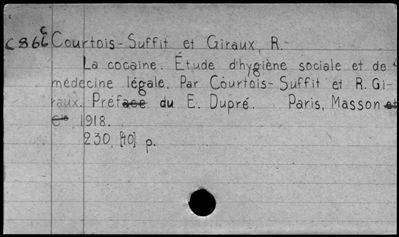 C866c Courtois-Suffit et Giraux, R.-
La cocaïne. Étude d'hygiène sociale et de
médecine légale. Par Courtois-Suffit et R. Gi-
raux. Préface du E. Dupré. Paris, Masson et
Cie 1918.
230, [10] p.